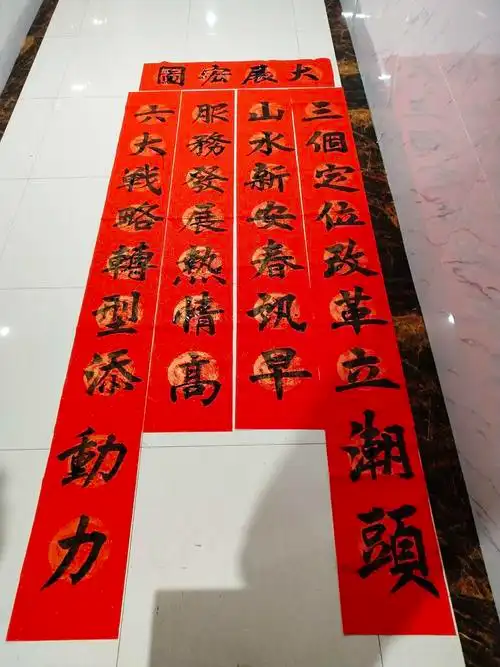 大展宏圖
三個定位改革立潮頭
山水新安春訊早
服務發展熱情高
六大戰略轉型添動力